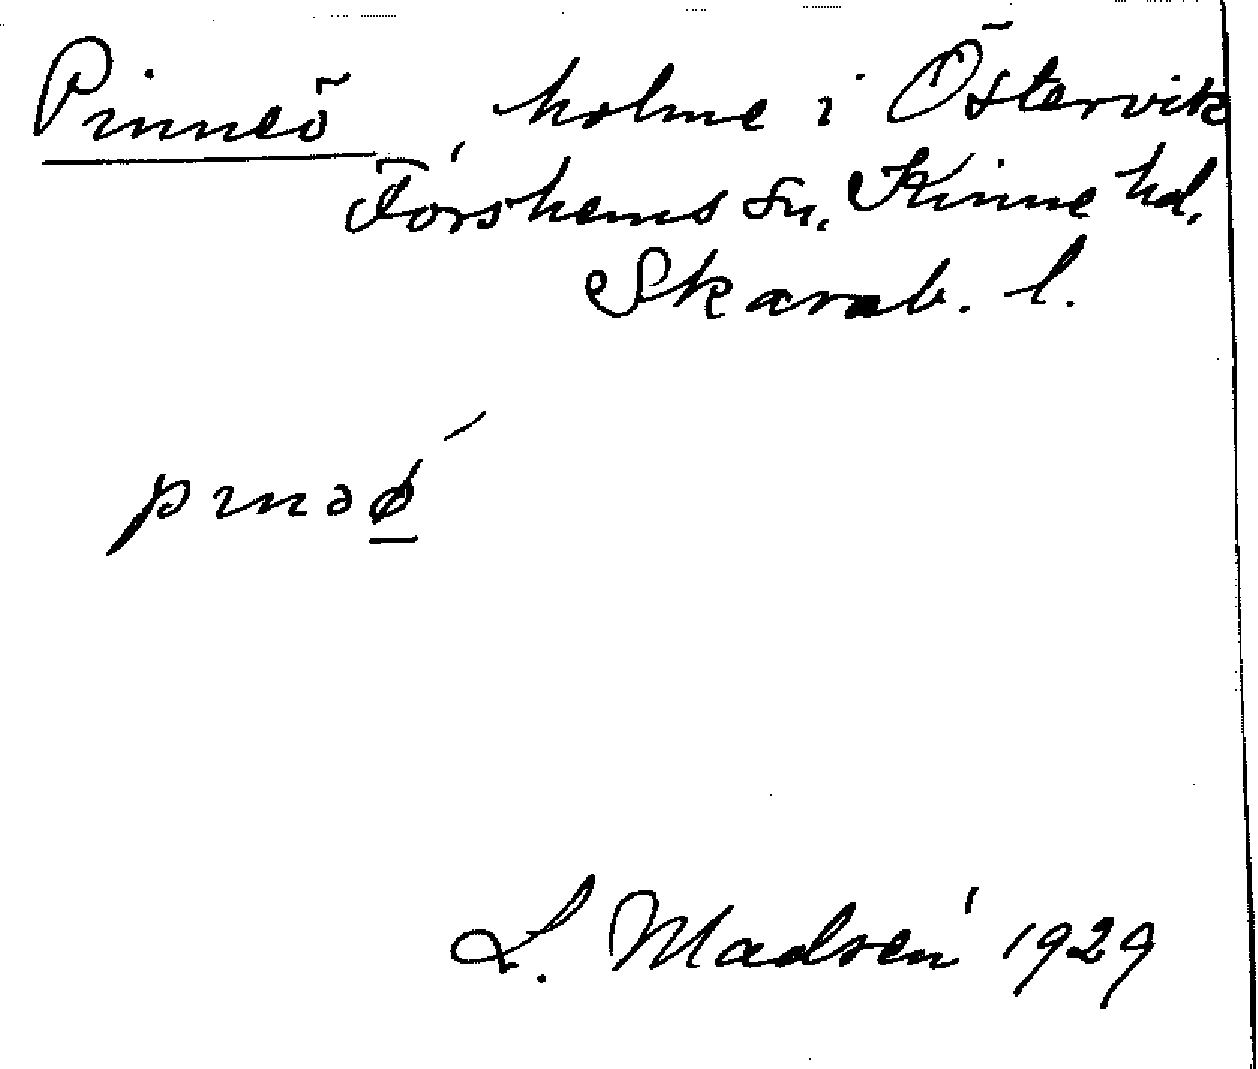 Pinneö, holme i Östervik
Forshems sn. Kinne hd,
Skarab. l.
pınəø̠´
L. Madsén 1929